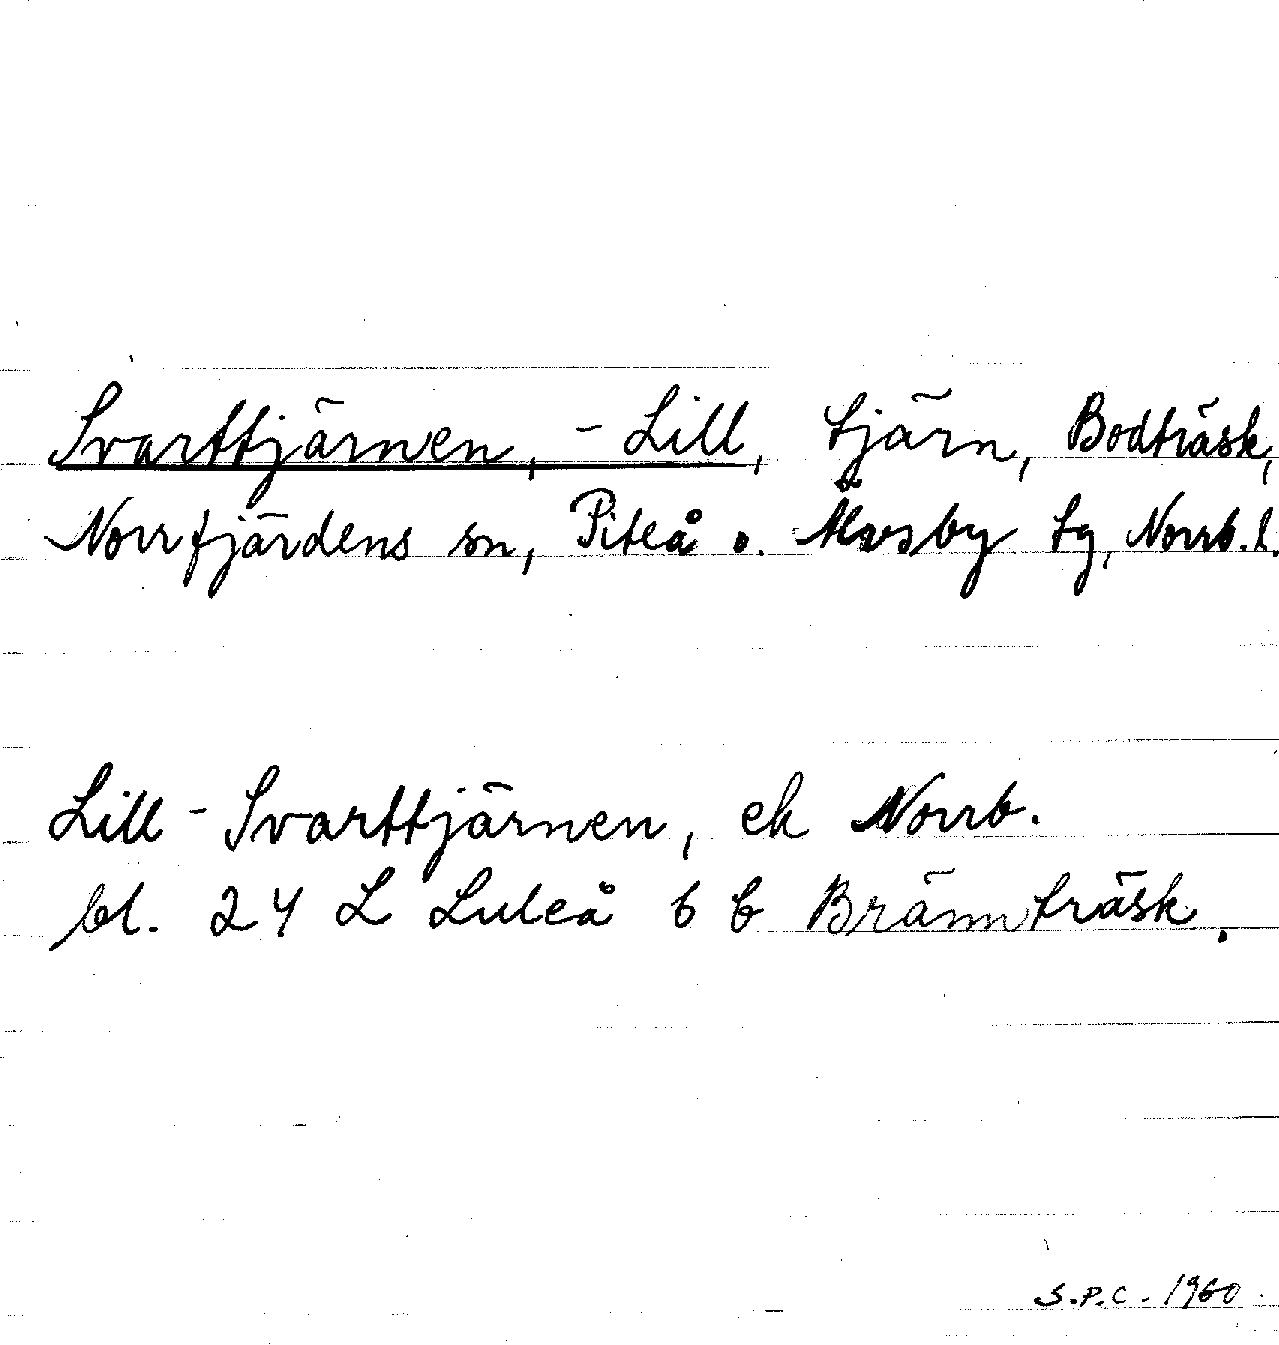 Svarttjärnen, - Lill, tjärn, Bodträsk,
Norrfjärdens sn, Piteå o. Älvsby tg, Norrb. l.
Lill - Svarttjärnen, ek Norrb.
bl. 24 L Luleå 6 b Brännträsk.
S.P.C. - 1960.